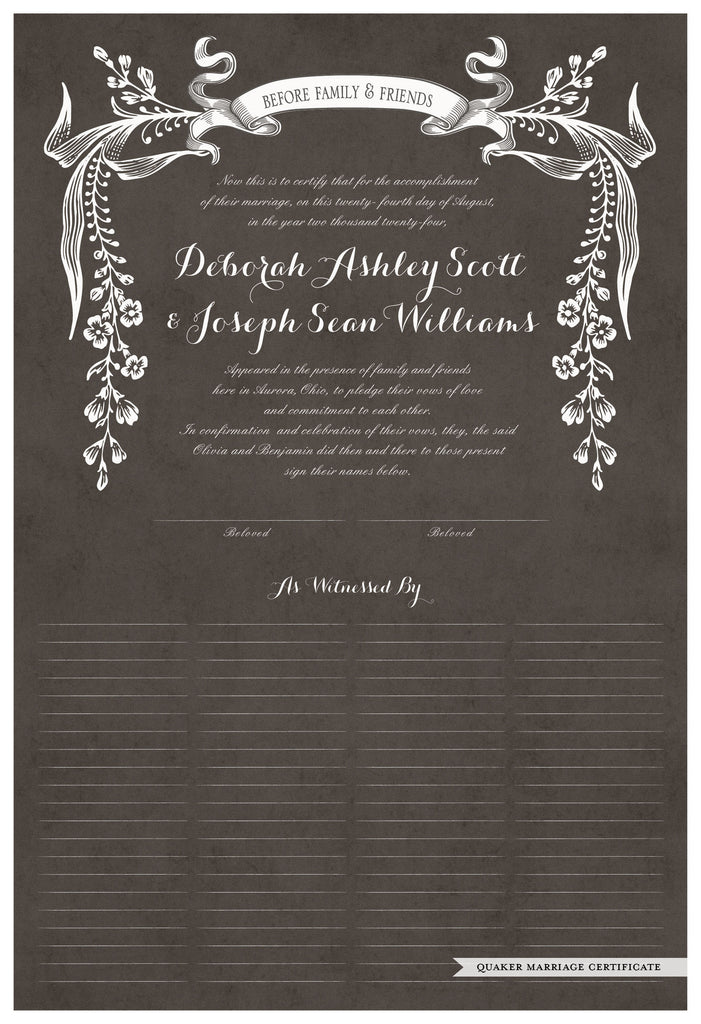 BEFORE FAMILY & FRIENDS
Now this is to certify that for the accomplishment
of their marriage, on this twenty- fourth day of August,
in the year two thousand twenty-four,
Deborah Ashley Scott
& Joseph Sean Williams
Appeared in the presence of family and friends
here in Aurora, Ohio, to pledge their vows of love
and commitment to each other.
In confirmation and celebration of their vows, they, the said
Olivia and Benjamin did then and there to those present
sign their names below.
Beloved Beloved
As Witnessed By
QUAKER MARRIAGE CERTIFICATE